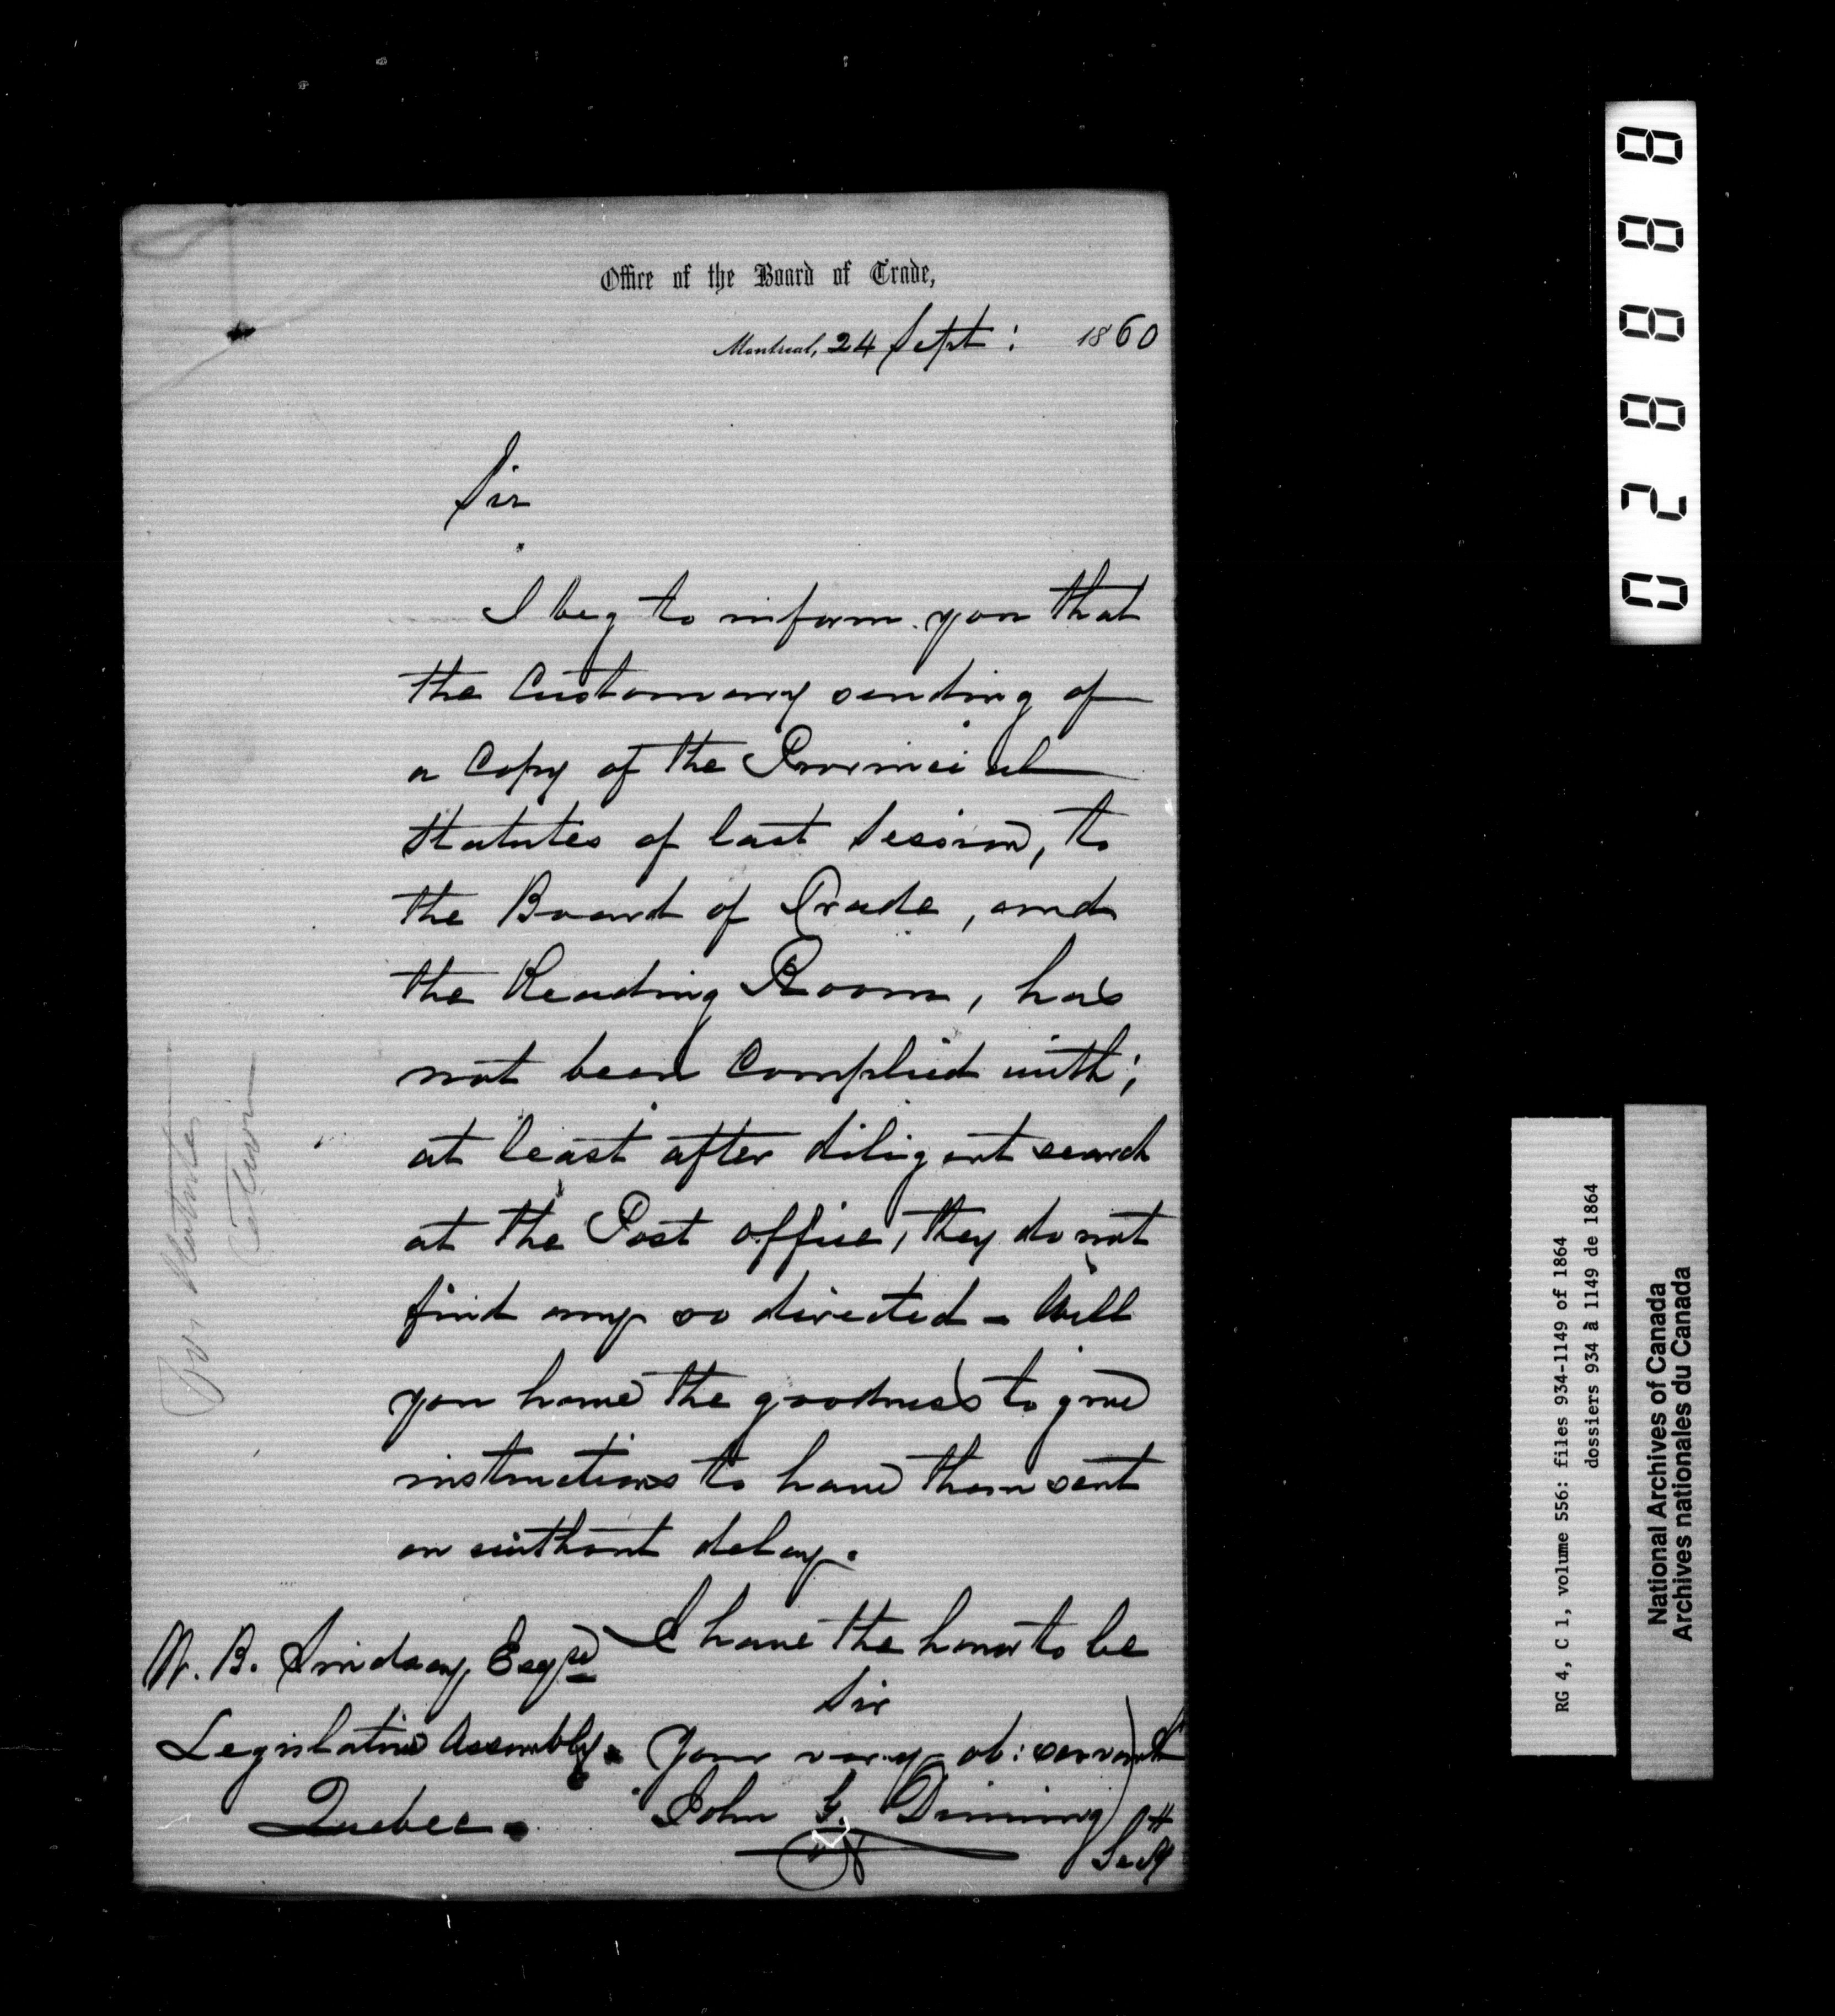 Office of the Board of Trade,
Montreal, 24 Sept: 1860
Sir
I beg to inform you that
the Customary sending of
a Copy of the Provincial
Statutes of last Session, to
the Board of Trade, and
the Reading Room, has
not been Complied with;
at least after diligent search
at the Post office, they do not
find any so directed - Will
you have the goodness to give
instructions to have them sent
on without delay.
I have the honor to be
Sir
Your very ob: servant
John G. Dinning
Secy
W. B. Lindsay, Esqre
Legislative Assembly.
Quebec.
Statutes
028888
RG 4, C 1, volume 556: files 934-1149 of 1864
dossiers 934 à 1149 de 1864
National Archives of Canada
Archives nationales du Canada